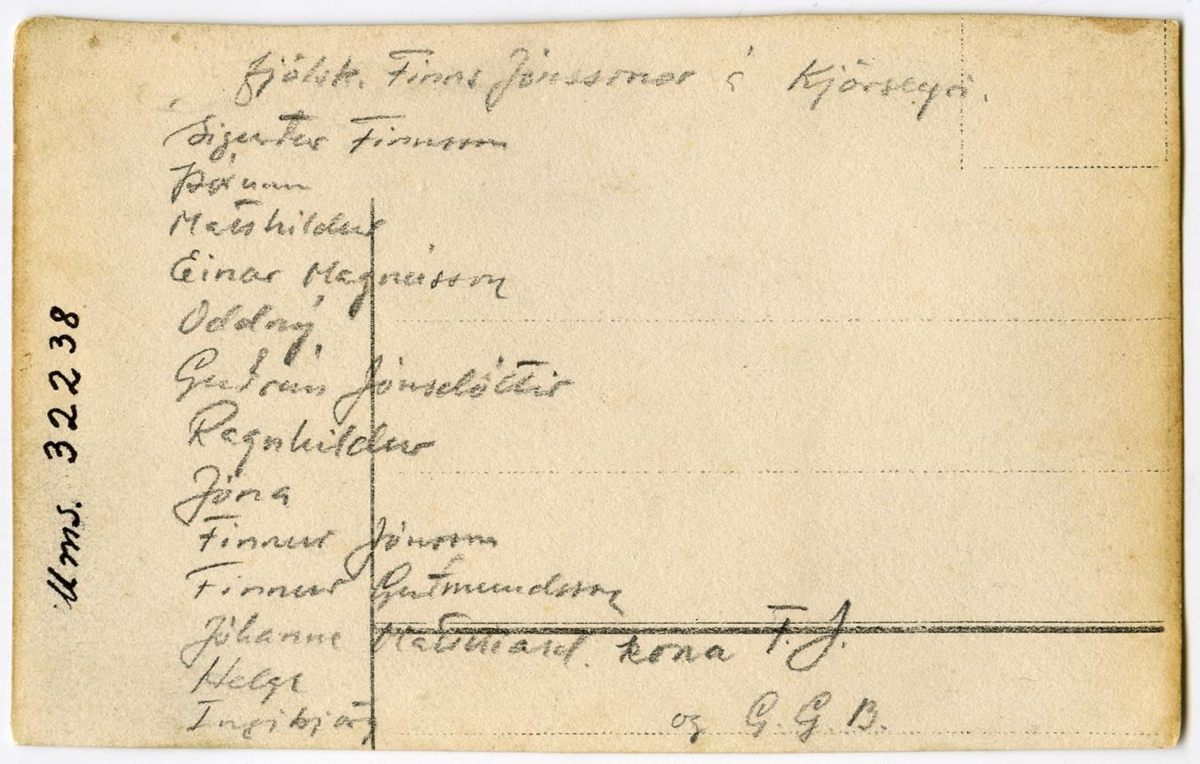 fjölsk. Finns Jónssonar á Kjörseyri.
Sigurður Finnsson
Matthildur
Einar Magnússon
Oddný
Guðrún Jónsdóttir
Ragnhildur
Jóna
Finnur Jónsson
Finnur Guðmundsson
Jóhanna Matthíasd. kona F. J.
Helgi
Ingibjörg og G. G. B.
Mms. 32238